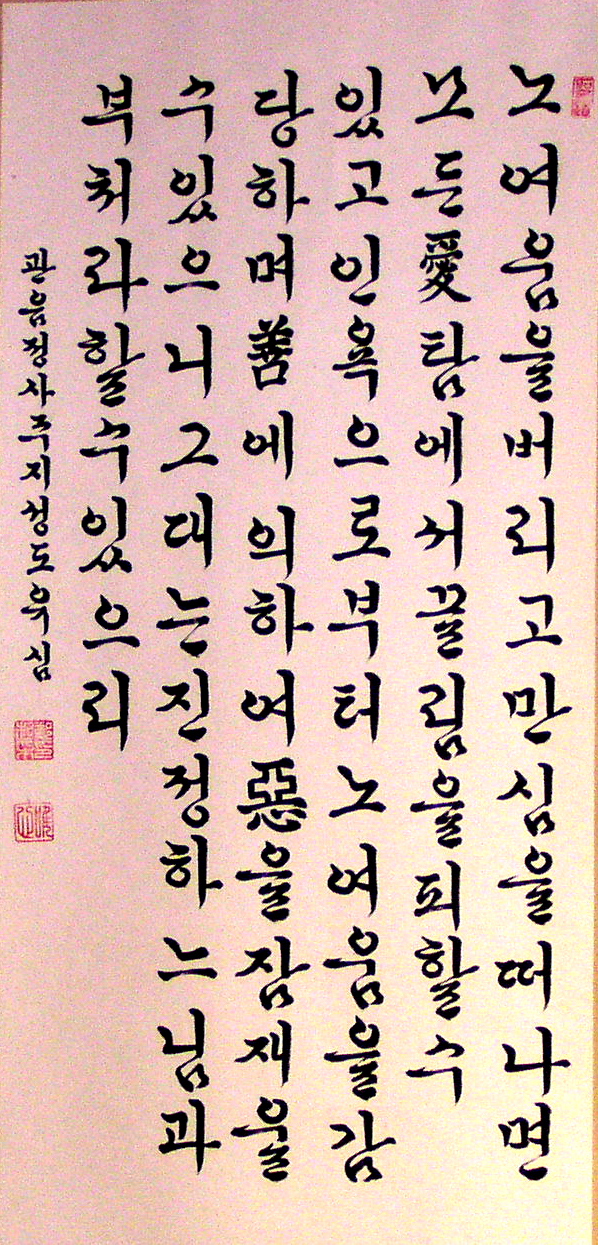 노여움을버리고만심을떠나면
모든愛탐에서끌림을피할수
있고인욕으로부터노여움을감
당하며善에의하여惡을잠재울
수있으니그대는진정하느님과
부처라할수있으리
관음정사주지청도욱심